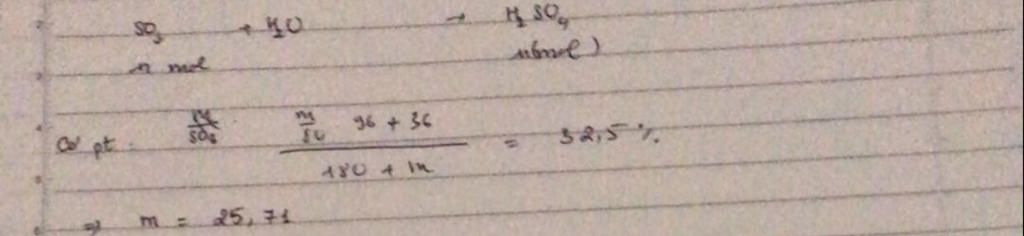 SO3 + H2O → H2SO4
n mol n(mol)
Có pt : m/80 96 + 36 / 180 + m = 32,5 %
⇒ m = 25,71